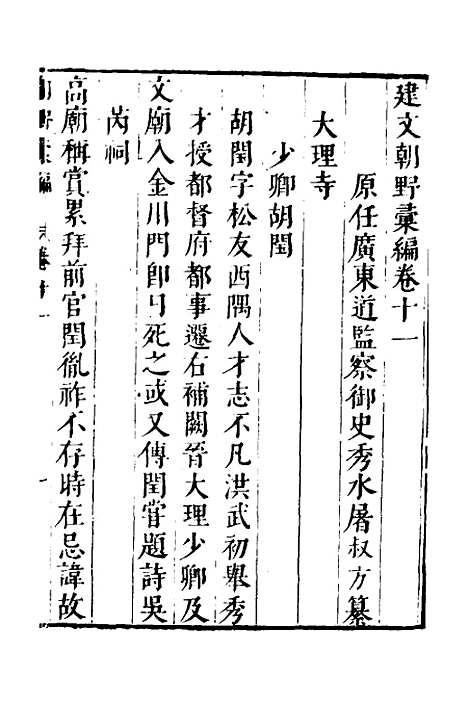 建文朝野彙編卷十一
原任廣東道監察御史秀水屠叔方纂
大理寺
少卿胡閏
胡閏字松友西隅人才志不凡洪武初舉秀
才授都督府都事遷右補闕晉大理少卿及
文廟入金川門即日死之或又傳閏嘗題詩吳
芮祠
高廟稱賞累拜前官閏胤祚不存時在忌諱故
朝野彙編 卷十一 一